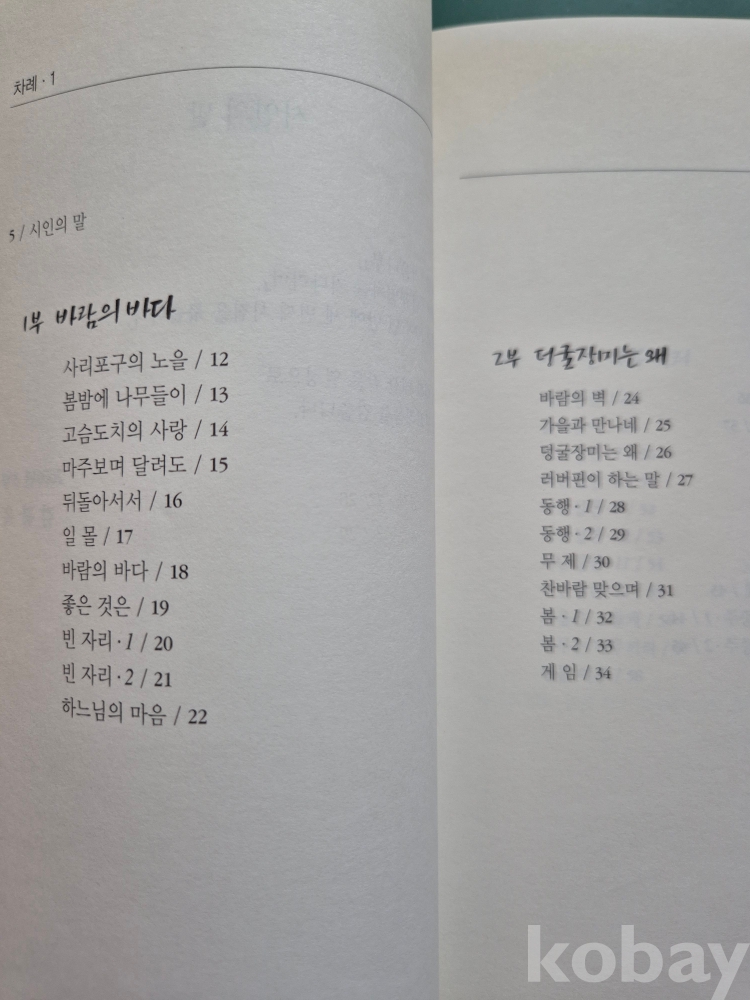 차례 · 1
5 / 시인의 말
1부 바람의 바다
사리포구의 노을 / 12
봄밤에 나무들이 / 13
고슴도치의 사랑 / 14
마주보며 달려도 / 15
뒤돌아서서 / 16
일 몰 / 17
바람의 바다 / 18
좋은 것은 / 19
빈 자리 · 1 / 20
빈 자리 · 2 / 21
하느님의 마음 / 22
2부 덩굴장미는 왜
바람의 벽 / 24
가을과 만나네 / 25
덩굴장미는 왜 / 26
러버핀이 하는 말 / 27
동행 · 1 / 28
동행 · 2 / 29
무 제 / 30
찬바람 맞으며 / 31
봄 · 1 / 32
봄 · 2 / 33
게 임 / 34
kobay